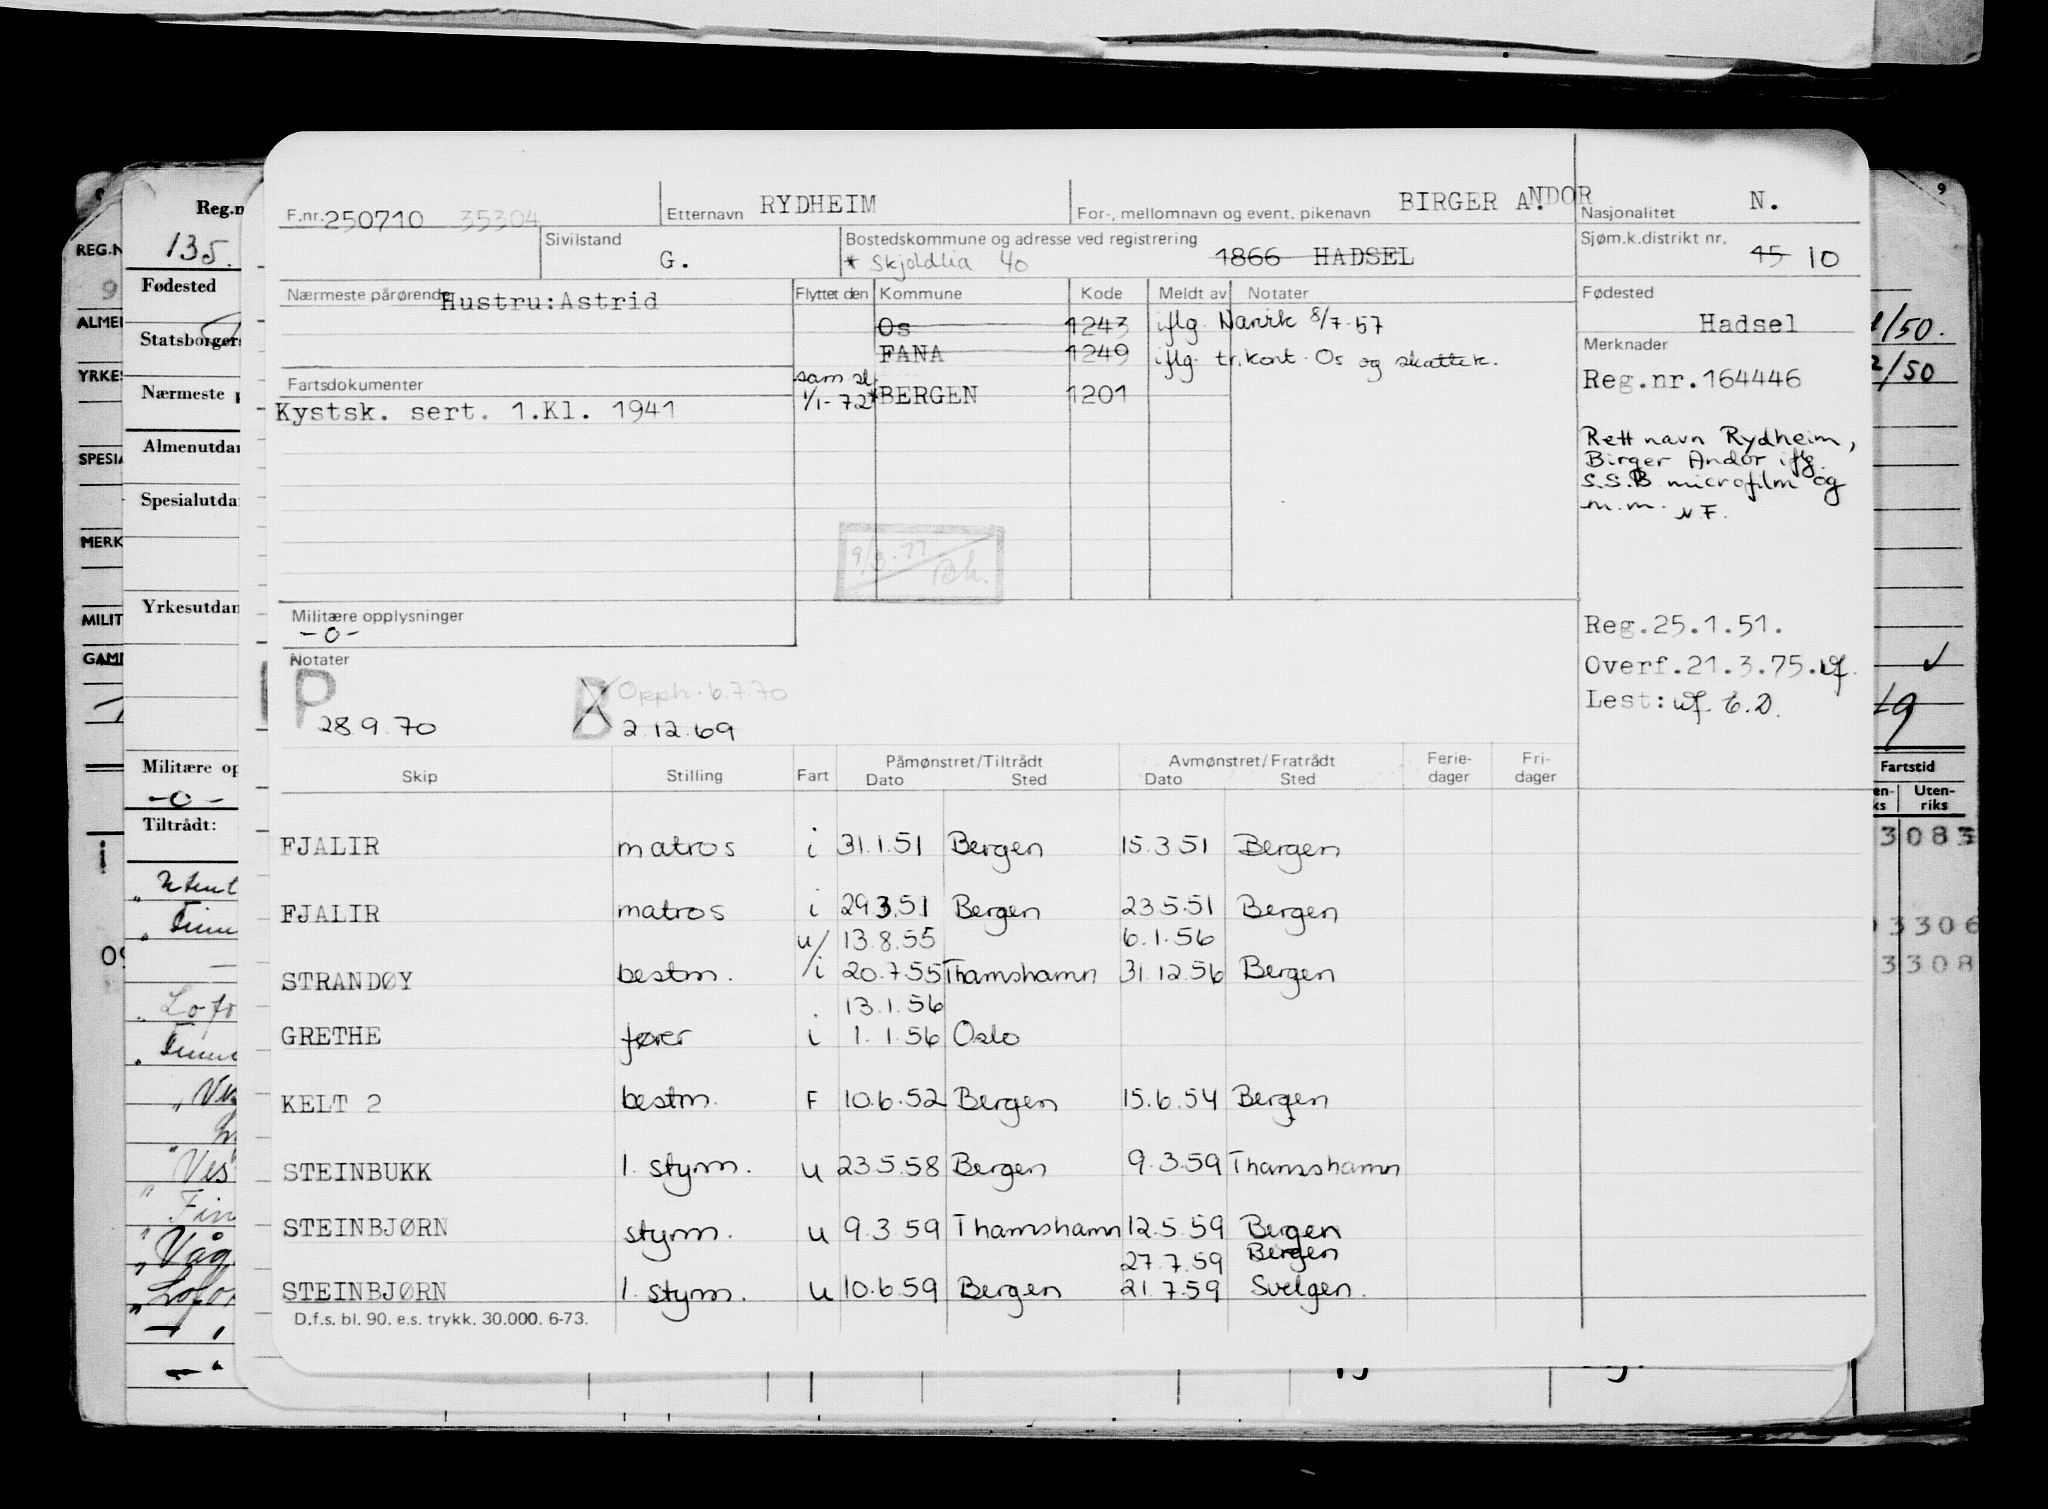 F.nr. 250710 35304 Etternavn RYDHEIM For-, mellomnavn og event. pikenavn BIRGER ANDOR Nasjonalitet N.
Sivilstand G. Bostedskommune og adresse ved registrering 1866 HADSEL Sjøm.k.distrikt nr. 15 10
* Skjoldlia 40
Nærmeste pårørende Hustru:Astrid Flyttet den Kommune Kode Meldt av Notater Fødested
Os 1243 iflg. Narvik 8/7-57 Hadsel
FANA 1249 iflg. tr.kont. Os og skattek. Merknader
Fartsdokumenter
Kystsk. sert. 1.Kl. 1941 1/1-72 * BERGEN 1201 Reg.nr.164446
Rett navn Rydheim,
Birger Andor iflg.
S.S.B microfilm og
m.m. NF.
9/3.77
Militære opplysninger
-o-
Reg.25.1.51.
Notater
Overf.21.3.75.
Lest:
P 28.9.70 B Opph. 6.7.70
2.12.69
Skip Stilling Fart Påmønstret/Tiltrådt Avmønstret/Fratrådt Ferie- Fri-
Dato Sted Dato Sted dager dager
FJALIR matros i 31.1.51 Bergen 15.3.51 Bergen
FJALIR matros i 29.3.51 Bergen 23.5.51 Bergen
u/ 13.8.55 6.1.56
STRANDØY bestm. i 20.7.55 Thamshamn 31.12.56 Bergen
13.1.56
GRETHE fører i 1.1.56 Oslo
KELT 2 bestm. F 10.6.52 Bergen 15.6.54 Bergen
STEINBUKK 1. styrm. u 23.5.58 Bergen 9.3.59 Thamshamn
STEINBJØRN styrm. u 9.3.59 Thamshamn 12.5.59 Bergen
27.7.59 Bergen
STEINBJØRN 1. styrm. u 10.6.59 Bergen 21.7.59 Svelgen.
D.f.s. bl. 90. e.s. trykk. 30.000. 6-73.
135.
Fødested
Nærmeste
Militære
-o-
Tiltrådt:
/50.
2/50
Fartstid
Uten-
riks